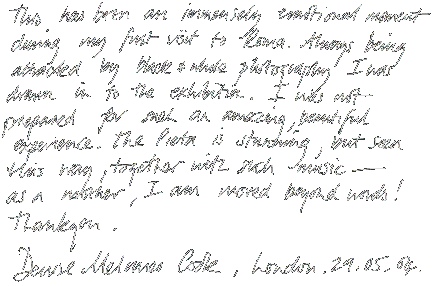 This has been an immensely emotional moment
during my first visit to Roma. Always being
attracted by black + white photography I was
drawn in to the exhibition. I was not
prepared for such an amazing, beautiful
experience. The Pieta is stunning, but seen
this way, together with such music —
as a mother, I am moved beyond words!
Thankyou.
Denise Cooke, London. 29.05.